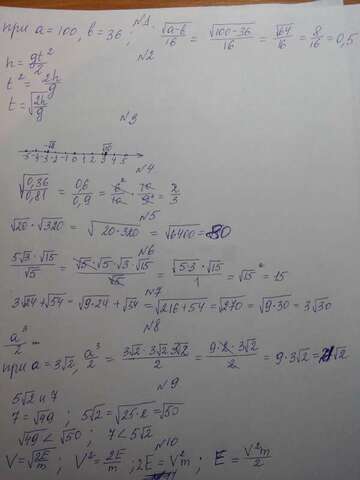 N1
при a = 100, b = 36; √(a-b)/16 = √(100-36)/16 = √64/16 = 8/16 = 0,5
N2
h = gt²/2
t² = 2h/g
t = √(2h/g)
N3
-5 -4 -3 -2 -1 0 1 2 3 4 5
N4
√(0,36/0,81) = 0,6/0,9 = 6/10 · 10/9 = 2/3
N5
√20 · √320 = √(20·320) = √6400 = 80
N6
5√3 · √15/√5 = √5·√5·√3·√15/√5 = √(5·3)·√15/1 = √15² = 15
N7
3√24 + √54 = √(9·24) + √54 = √(216+54) = √270 = √(9·30) = 3√30
N8
a³/2
при a = 3√2, a³/2 = 3√2·3√2·3√2/2 = 9·2·3√2/2 = 9·3√2 = 27√2
N9
5√2 и 7
7 = √49 ; 5√2 = √(25·2) = √50
√49 < √50 ; 7 < 5√2
N10
V = √(2E/m) ; V² = 2E/m ; 2E = V²m ; E = V²m/2